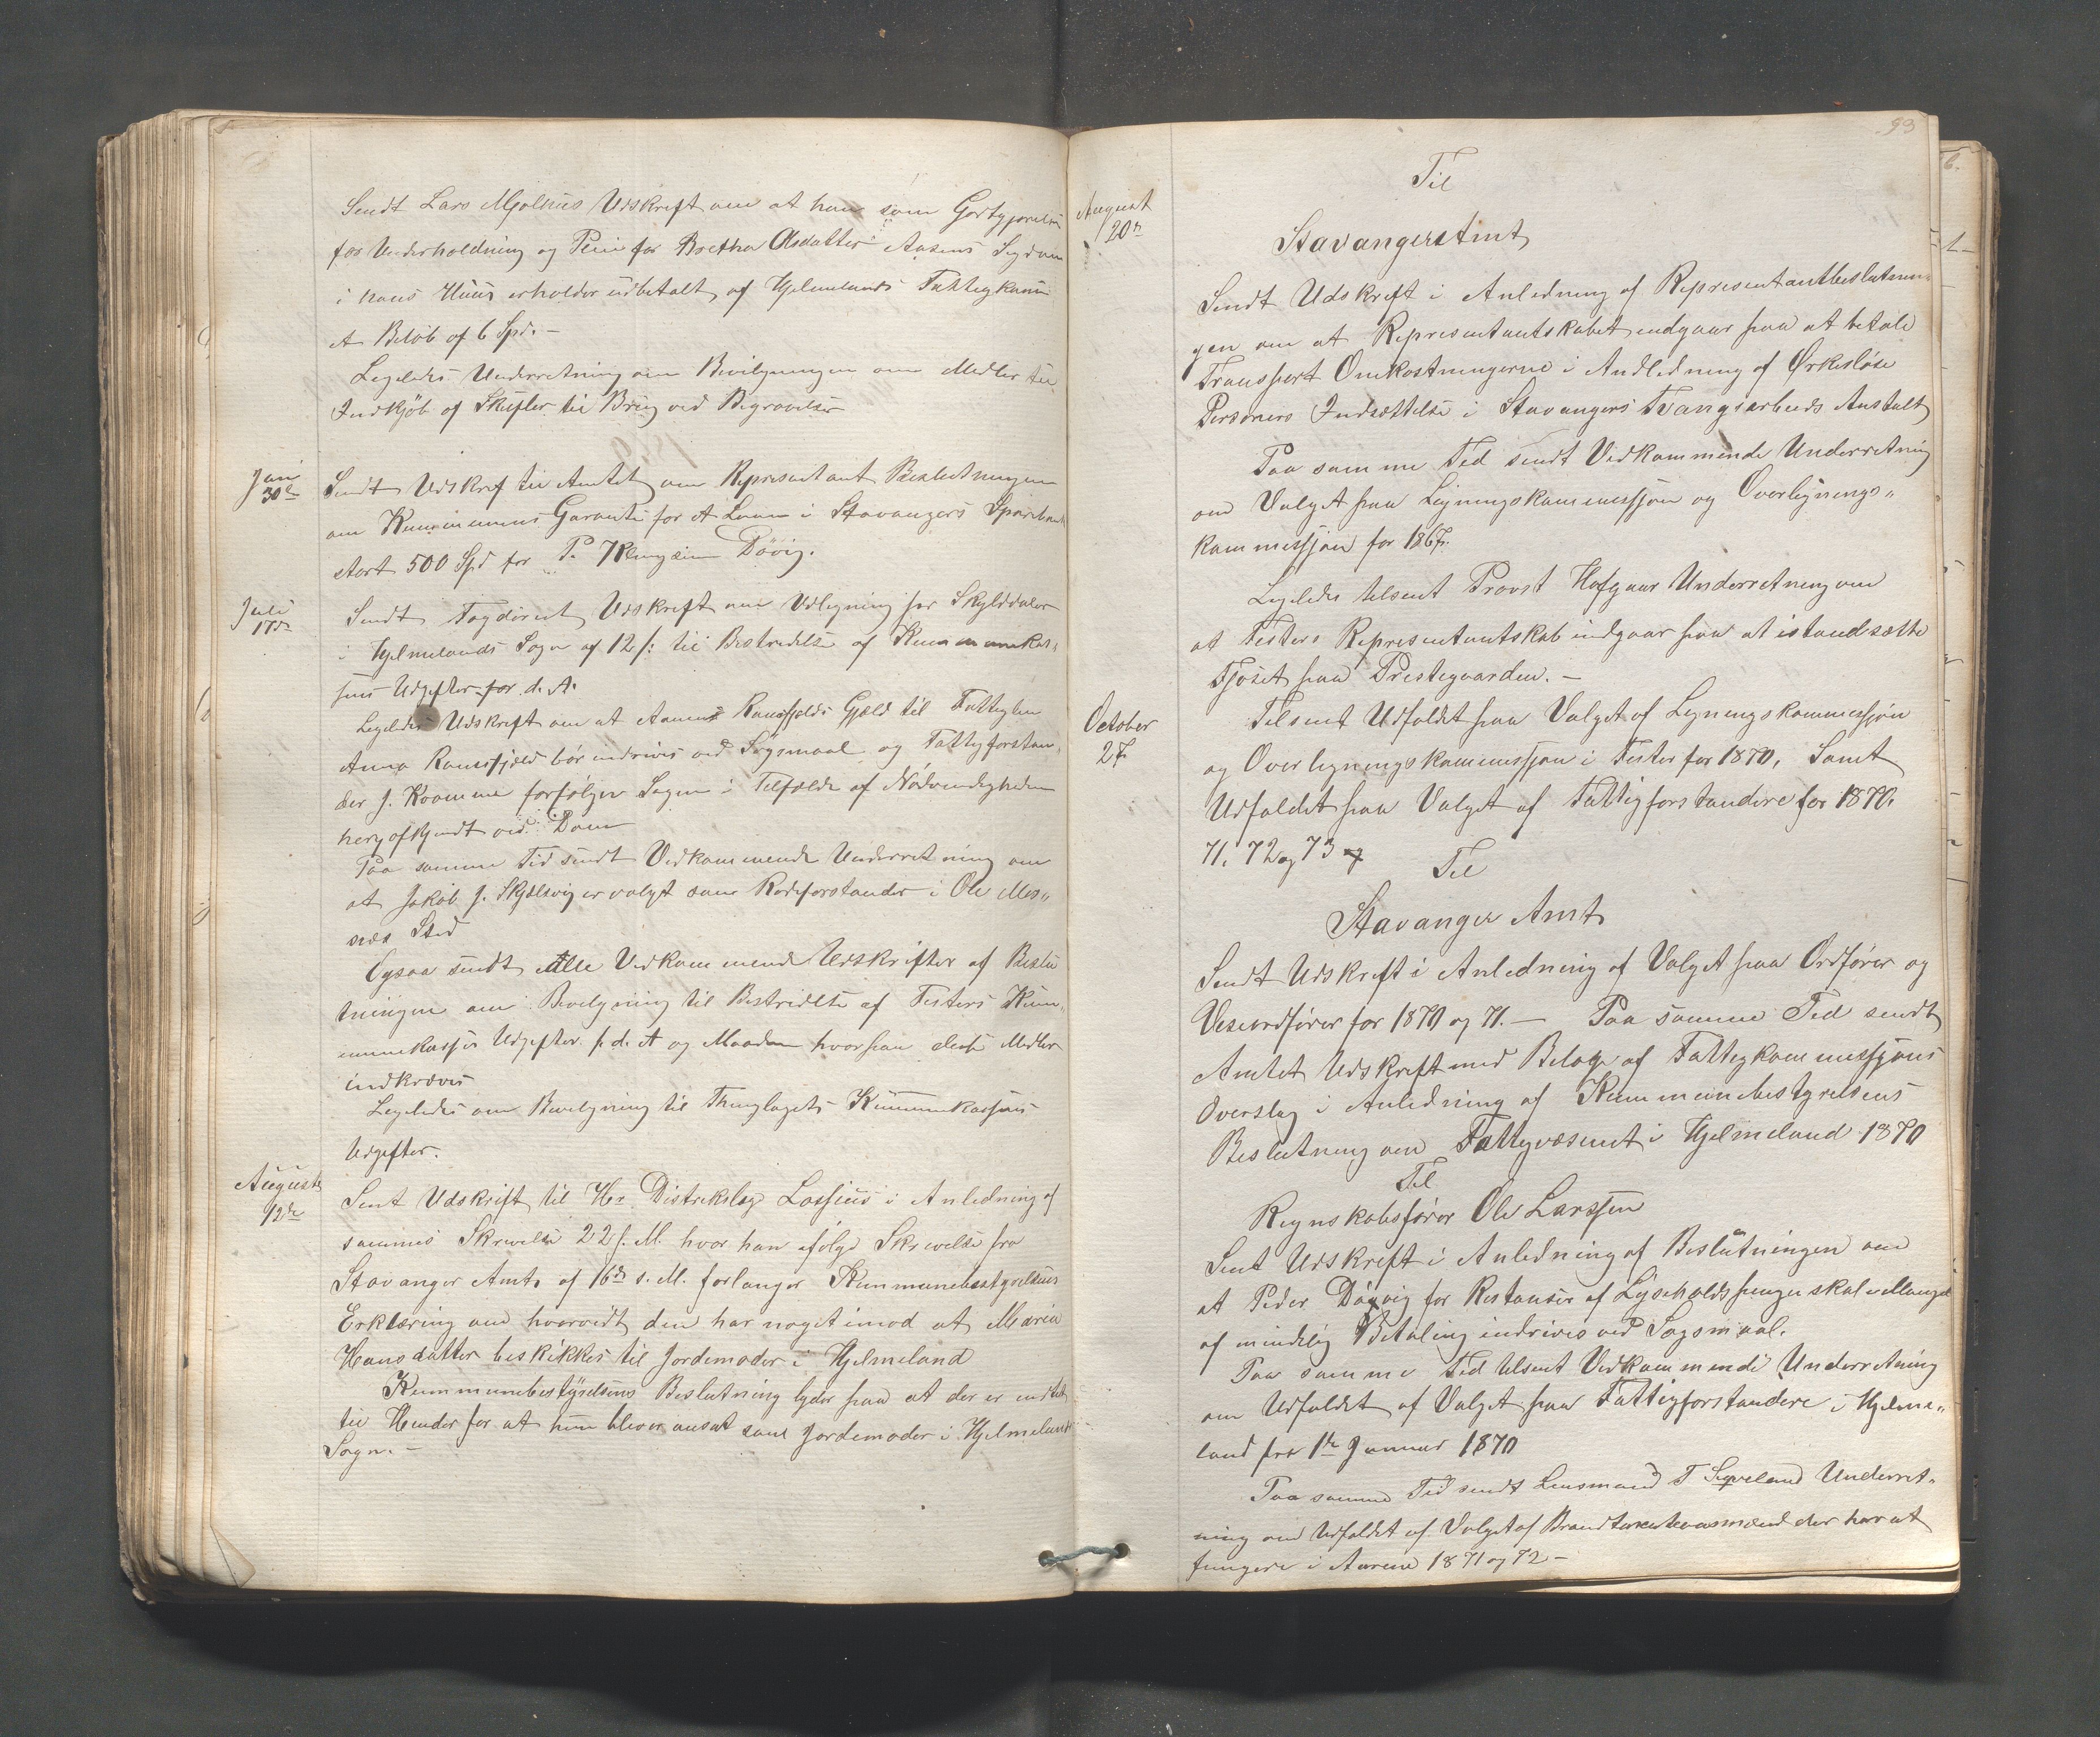 Sendt Lars Mjølhus Udskrift om at han som Godtgjørelse
for Underholdning og Pleie for Bretha Olsdatter Aasens Sygdom
i hans Huus erholder udbetalt af Hjelmelands Fattigkasse
et Beløb af 6 Spd. —
Ligeledes Underretning om Bevilgningen om Midler til
Indkjøb af Skufler til Brug ved Begravelser
Juni
30te
Sendt Udskrift til Amtet om Representant Beslutningen
om Kummunens Garanti for et Laan i Stavangers Sparebank
stort 500 Spd for P. Døvig.
Juli
17de
Sendt Fogderiet Udskrift om Udligning per Skylddaler
i Hjelmelands Sogn af 12 s: til Bestridelse af Kummunekas¬
sens Udgifter for d. A.
Ligeledes Udskrift om at Ramsfjelds Gjæld til Fattiglem
Anna Ramsfjeld bør indrives ved Søgsmaal og Fattigforstan¬
der J. Kvamme forfølger Sagen i Tilfælde af Nødvendigheden
ved Dom
Paa samme Tid sendt Vedkommende Underretning om
at Jakob J. Skjølsvig er valgt som Rodeforstander i Ole Mes„
næs Sted
Ogsaa sendt Alle Vedkommende Udskrifter af Beslu
tningen om Bevilgning til Bestridelse af Fisters Kum¬
munekasses Udgifter f. d. A og Maaden hvorpaa disse Midler
indkræves
Ligeledes om Bevilgning til Thinglagets Kummunekasses
Udgifter.
Auguste
12te
Sent Udskrift til Hr Distriktslæg Lossius i Anledning af
sammes Skrivelse 22 f. M. hvor han ifølge Skrivelse fra
Stavanger Amt af 16de s. M. forlanger Kummunebestyrelsens
Erklæring om hvorvidt den har noget imod at Maria
Hansdatter beskikkes til Jordemoder i Hjelmeland
Kummunebestyrelsens Beslutning lyder paa at der er indtet
til Hinder for at hun bliver ansat som Jordemoder i Hjelmelands
Sogn. —
93
Til
August
20de
Stavangers Amt
Sendt Udskrift i Anledning af Representantbeslutnin
gen om at Representantskabet indgaar paa at betale
Transport Omkostningerne i Andledning af Ørkesløse
Personers Indsættelse i Stavangers Tvangsarbeids Anstalt
Paa samme Tid sendt Vedkommende Underretning
om Valget paa Ligningskommissjon og Overlignings„
kommissjon for 1867.
Ligeledes tilsent Provst Hofgaar Underretning om
at Fisters Representantskab indgaar paa at istandsætte
Fjøset paa Prestegaarden. —
October
27.
Tilsent Udfaldet paa Valget af Ligningskommissjon
og Overligningskommissjon i Fister for 1870, Samt
Udfaldet paa Valget af Fattigforstandere for 1870.
71, 72 og 73
Til
Stavanger Amt
Sendt Udskrift i Anledning af Valget paa Ordfører og
Viseordfører for 1870 og 71. — Paa samme Tid sendt
Amtet Udskrift med Bilage af Fattigkommissjons
Overslag i Anledning af Kummunebestyrelsens
Beslutning om Fattigvæsenet i Hjelmeland 1870
Til
Regnskabsfører Ole Larssen
Sent Udskrift i Anledning af Beslutningen om
at Peder Døvig for Restanser af Lysholdspenger skal i Mangel
af mindelig Betaling indrives ved Søgsmaal.
Paa samme Tid tilsent Vedkommende Underretning
om Udfaldet af Valget paa Fattigforstandere i Hjelme„
land fra 1te Januar 1870
Paa samme Tid sendt Lensmand T Underret„
ning om Udfaldet af Valget af Brandtakstmænd der har at
fungere i Aarene 1871 og 72 —